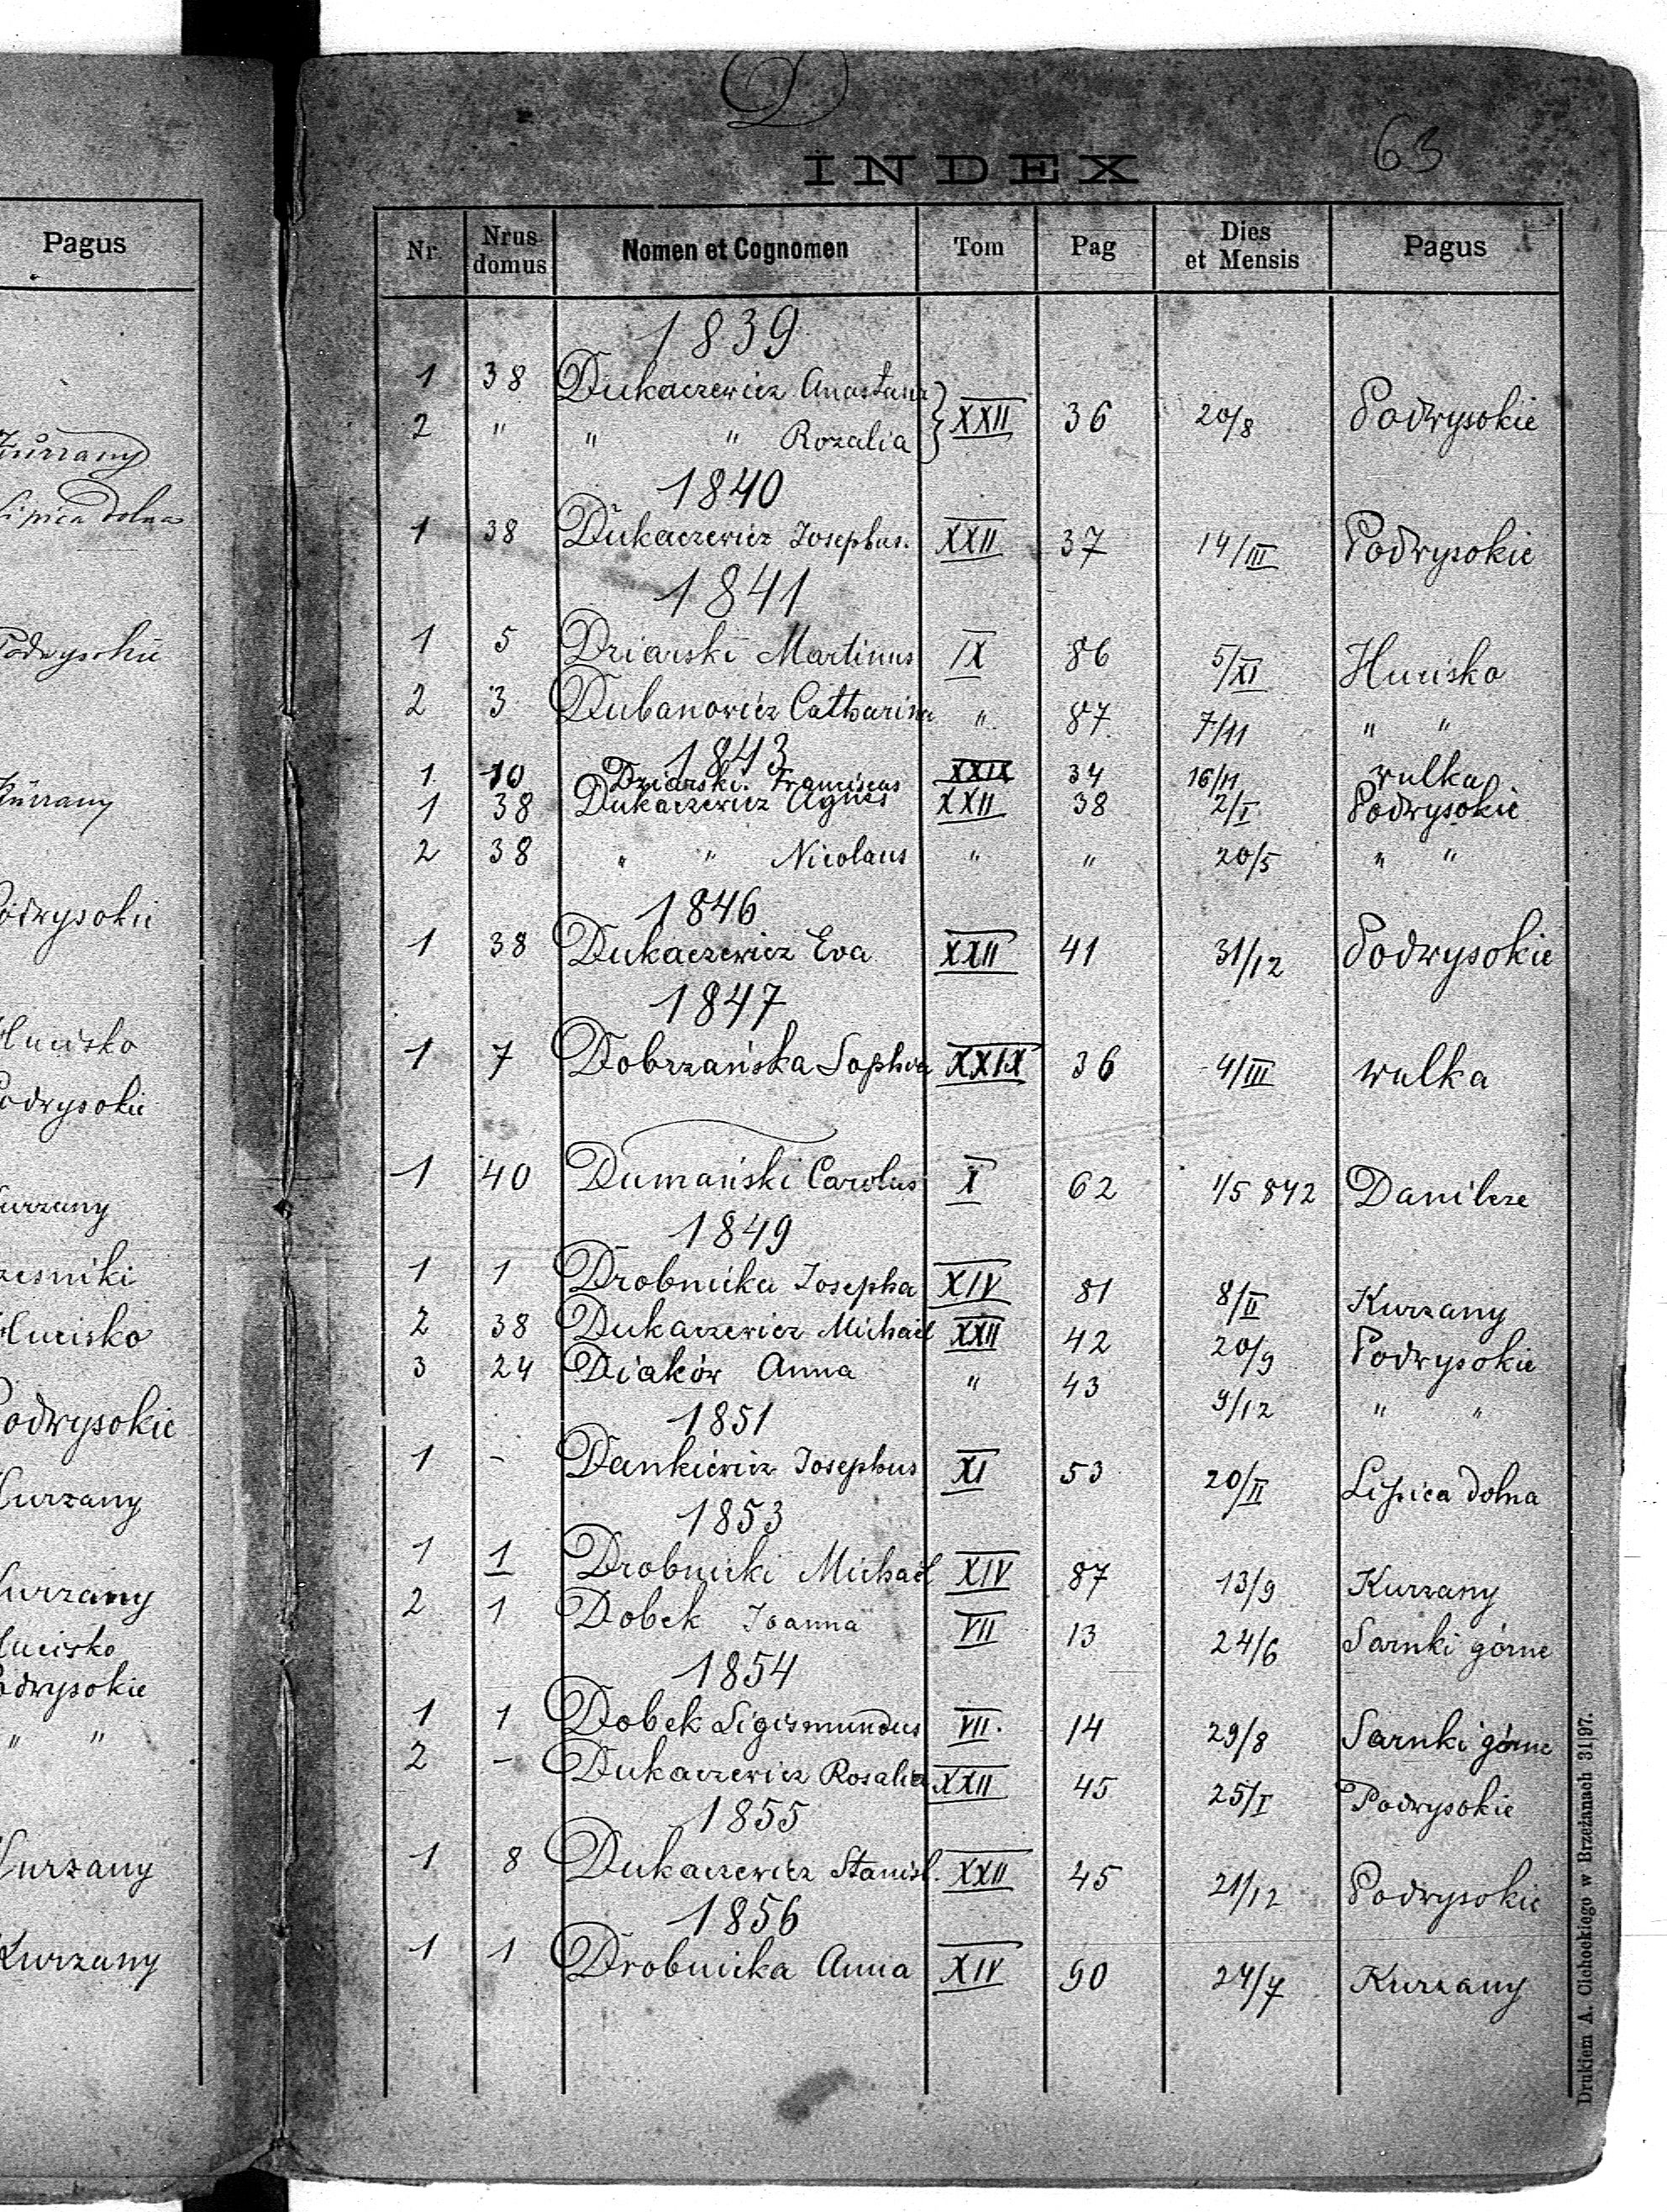 Pagus
Kurzany
Lipica dolna
Podwysokie
Kurzany
Podwysokie
Hucisko
Podwysokie
Kurzany
Hucisko
Podwysokie
Kurzany
Kurzany
Hucisko
Podwysokie
" "
Kurzany
Kurzany
D
63
INDEX
Nr Nrus domus Nomen et Cognomen Tom Pag Dies et Mensis Pagus
1839
1 38 Dukaczewicz Anastasia XXII 36 20/8 Podwysokie
2 " " " Rozalia
1840
1 38 Dukaczewicz Josephus. XXII 37 14/III Podwysokie
1841
1 5 Dziarski Martinus IX 86 5/XI Hucisko
2 3 Dubanowicz Catharina " 87 7/11 " "
1843
1 10 Dziarski Franciscus XXIX 34 16/11 Wulka
1 38 Dukaczewicz Agnes XXII 38 2/I Podwysokie
2 38 " " Nicolaus " " 20/5 " "
1846
1 38 Dukaczewicz Eva XXII 41 31/12 Podwysokie
1847
1 7 Dobrzańska Sophia XXIX 36 4/III Wulka
1 40 Dumański Carolus X 62 1/5 842 Danilcze
1849
1 1 Drobnicka Josepha XIV 81 8/II Kurzany
2 38 Dukaczewicz Michael XXII 42 20/9 Podwysokie
3 24 Diaków Anna " 43 9/12 " "
1851
1 - Dankiewicz Josephus XI 53 20/II Lipica dolna
1853
1 1 Drobnicki Michael XIV 87 13/9 Kurzany
2 1 Dobek Joanna VII 13 24/6 Sarnki górne
1854
1 1 Dobek Sigismundus VII. 14 29/8 Sarnki górne
2 - Dukaczewicz Rosalia XXII 45 25/I Podwysokie
1855
1 8 Dukaczewicz Stanisl. XXII 45 21/12 Podwysokie
1856
1 1 Drobnicka Anna XIV 90 24/7 Kurzany
Drukiem A. Cichockiego w Brzeżanach 31|97.